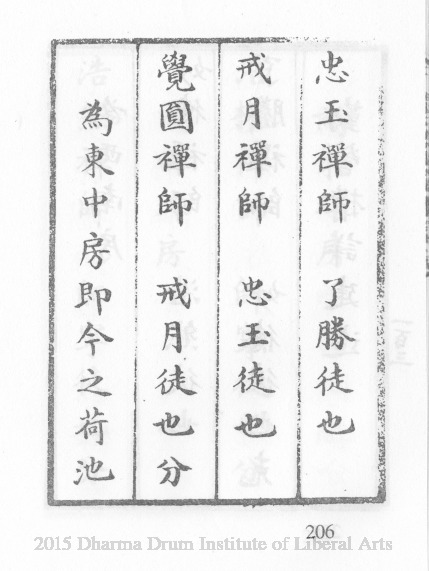 忠玉禪師　了勝徒也
戒月禪師　忠玉徒也
覺圓禪師　戒月徒也分
為東中房即今之荷池
206
2015 Dharma Drum Institute of Liberal Arts